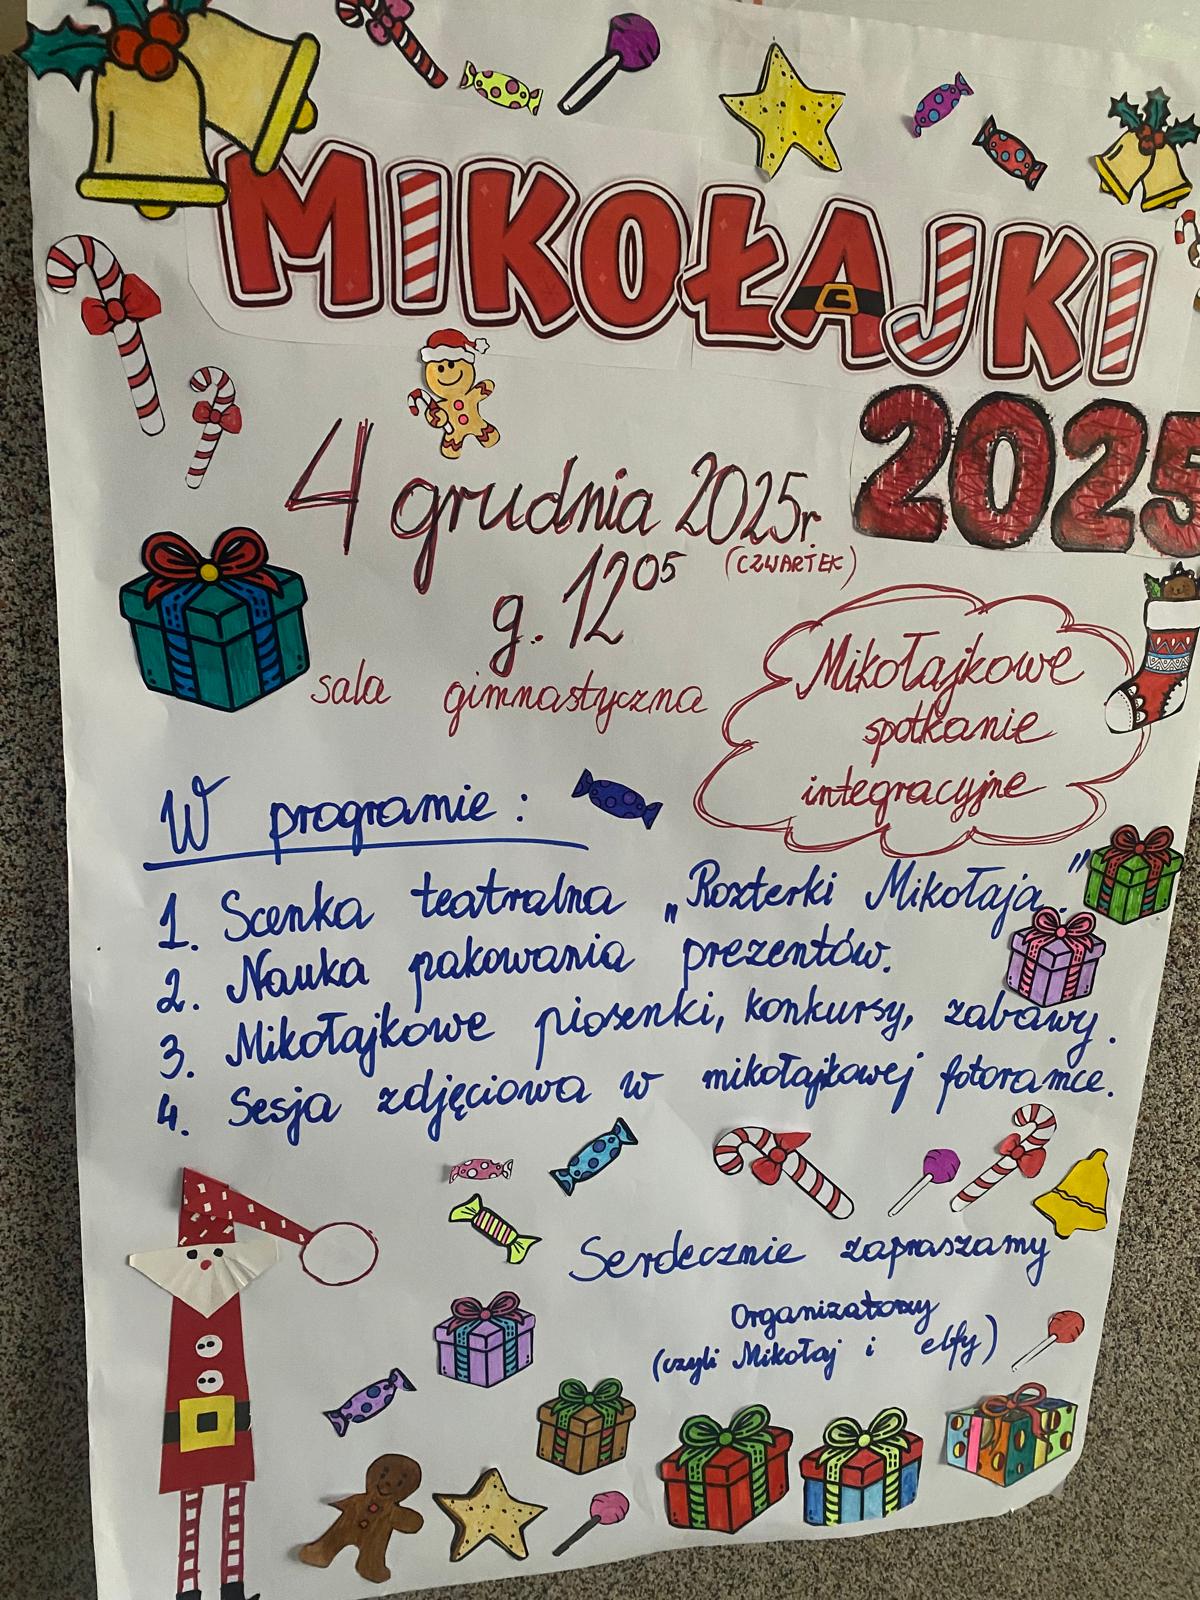 MIKOŁAJKI
2025
4 grudnia 2025r.
(CZWARTEK)
g. 12⁰⁵
sala gimnastyczna
Mikołajkowe
spotkanie
integracyjne
W programie:
1. Scenka teatralna „Rozterki Mikołaja."
2. Nauka pakowania prezentów.
3. Mikołajkowe piosenki, konkursy, zabawy.
4. Sesja zdjęciowa w mikołajkowej fotoramce.
Serdecznie zapraszamy
Organizatorzy
(czyli Mikołaj i elfy)